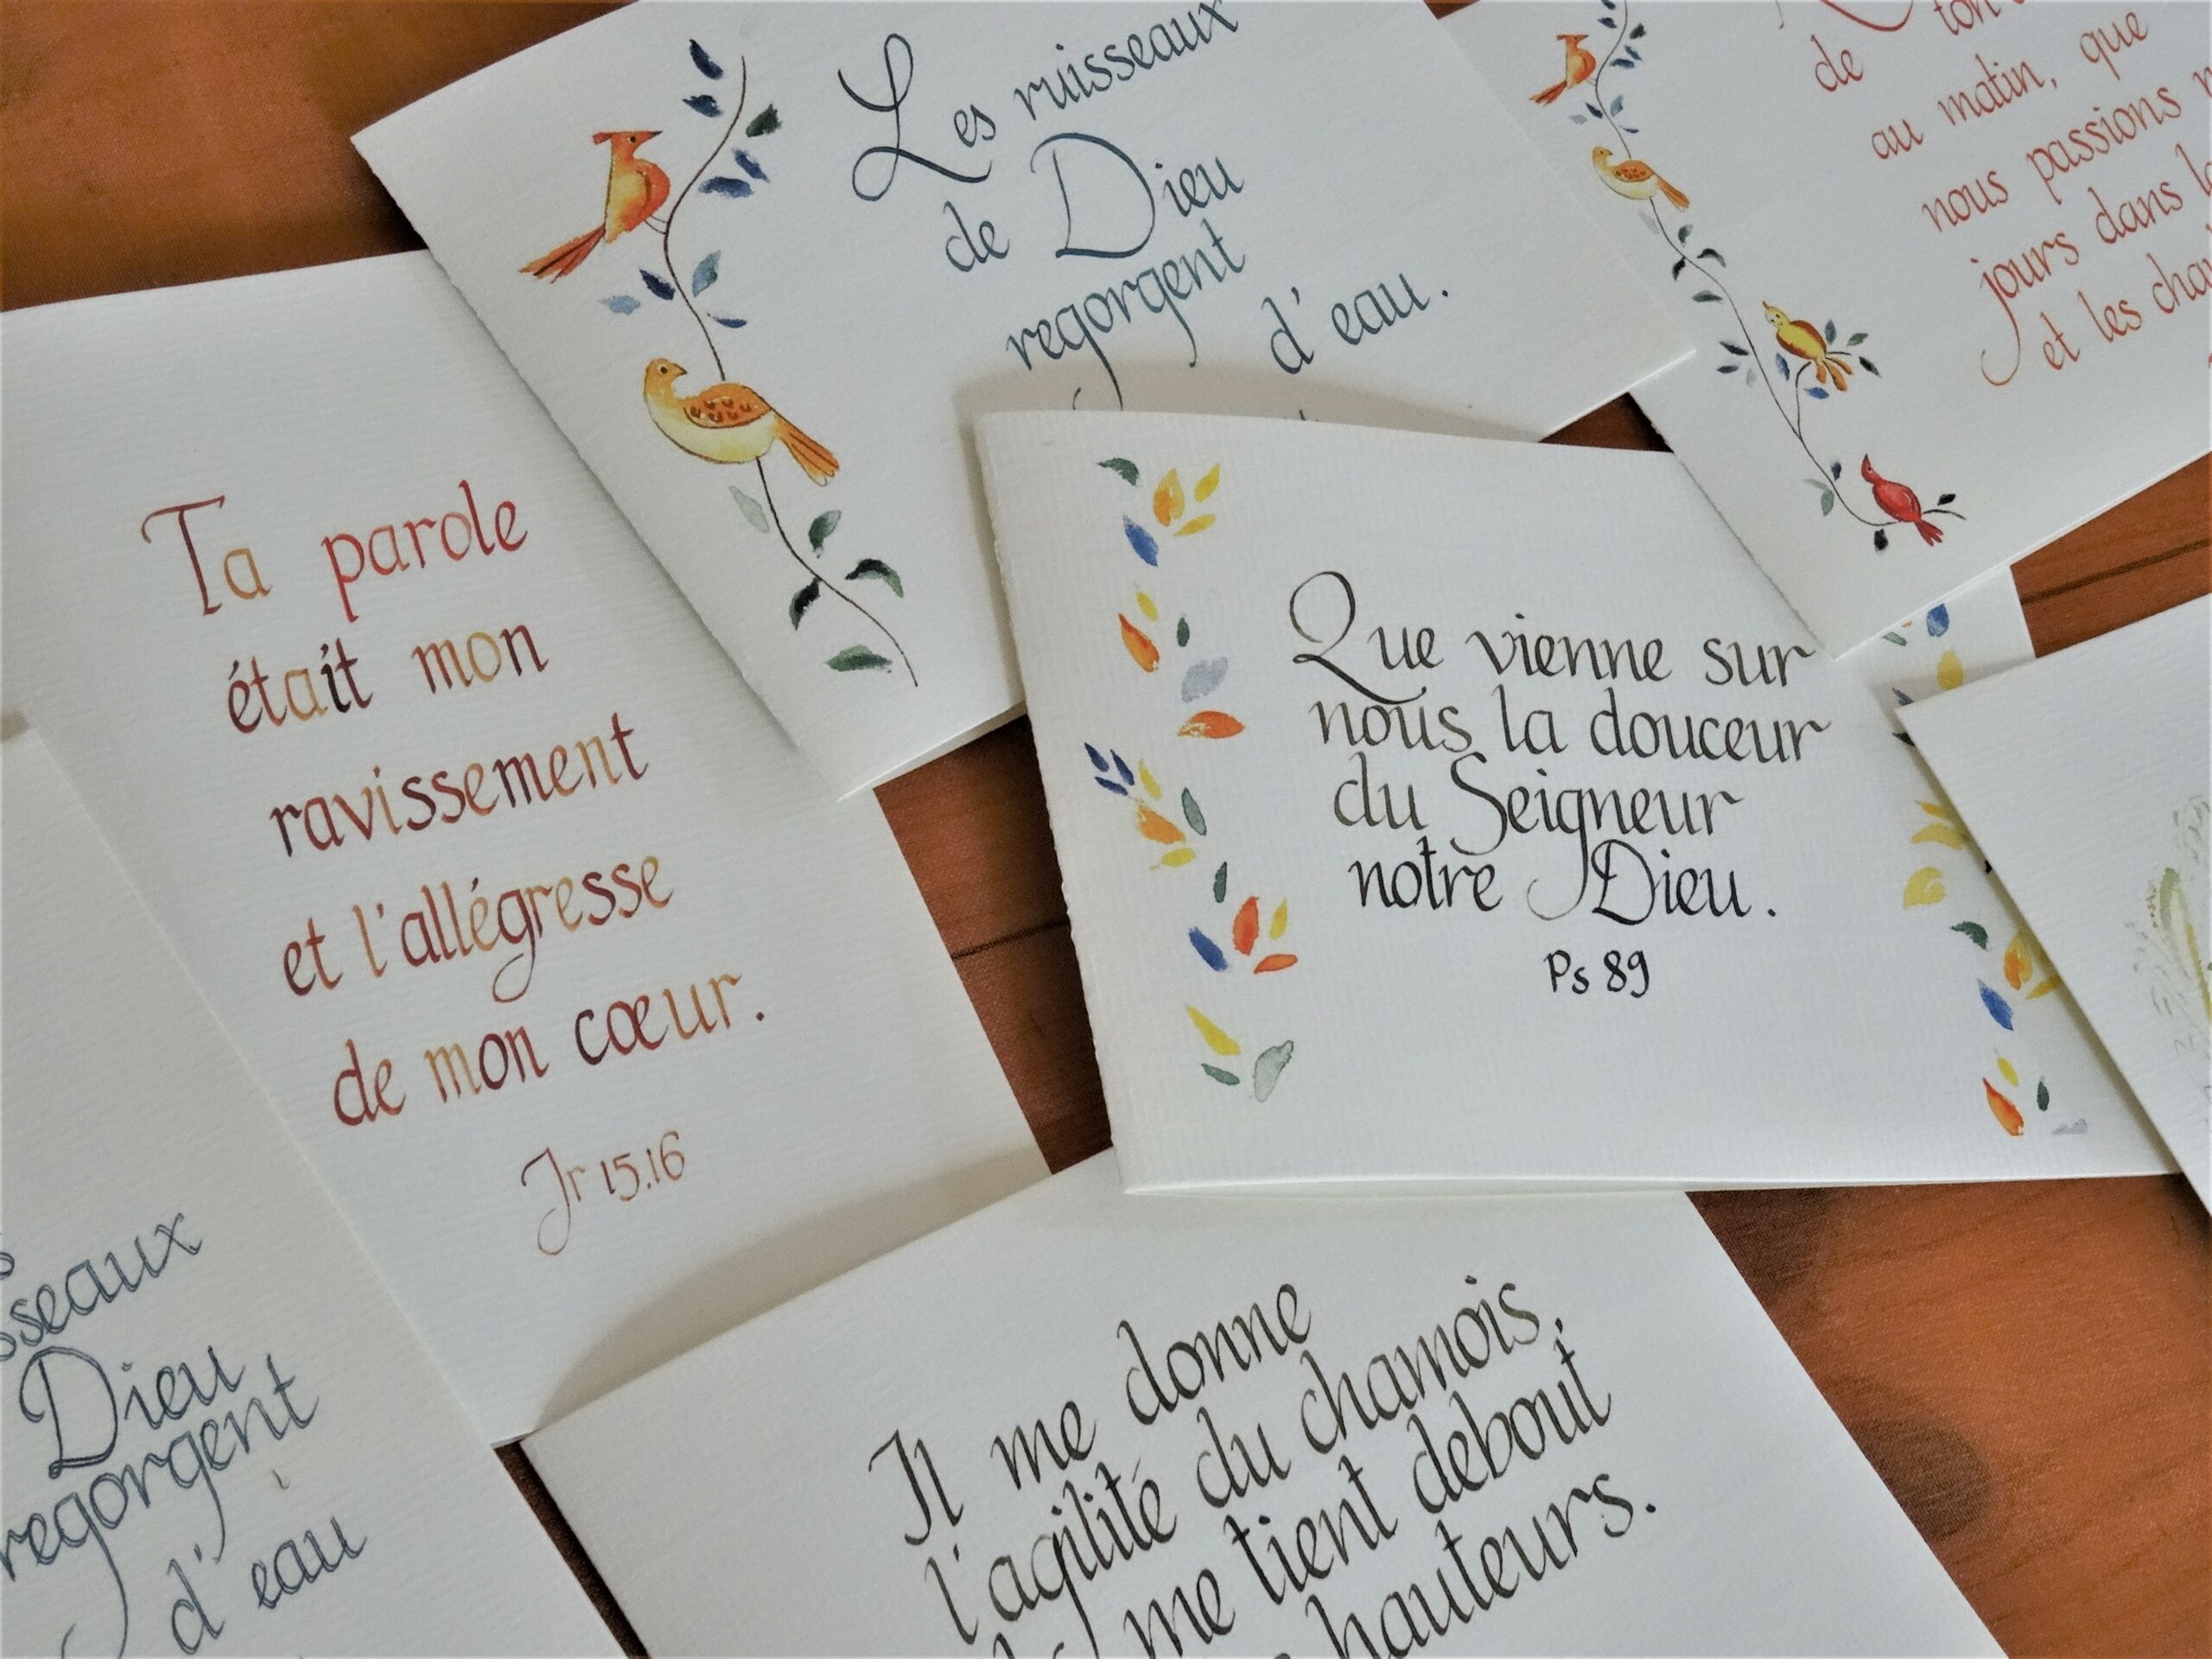 Les ruisseaux
de Dieu
regorgent
d'eau.
de ton
au matin, que
nous passions
jours dans
et les
Ta parole
était mon
ravissement
et l'allégresse
de mon cœur.
Jr 15.16
Que vienne sur
nous la douceur
du Seigneur
notre Dieu.
Ps 89
Dieu
regorgent
d'eau
Il me donne
l'agilité du chamois,
me tient debout
hauteurs.